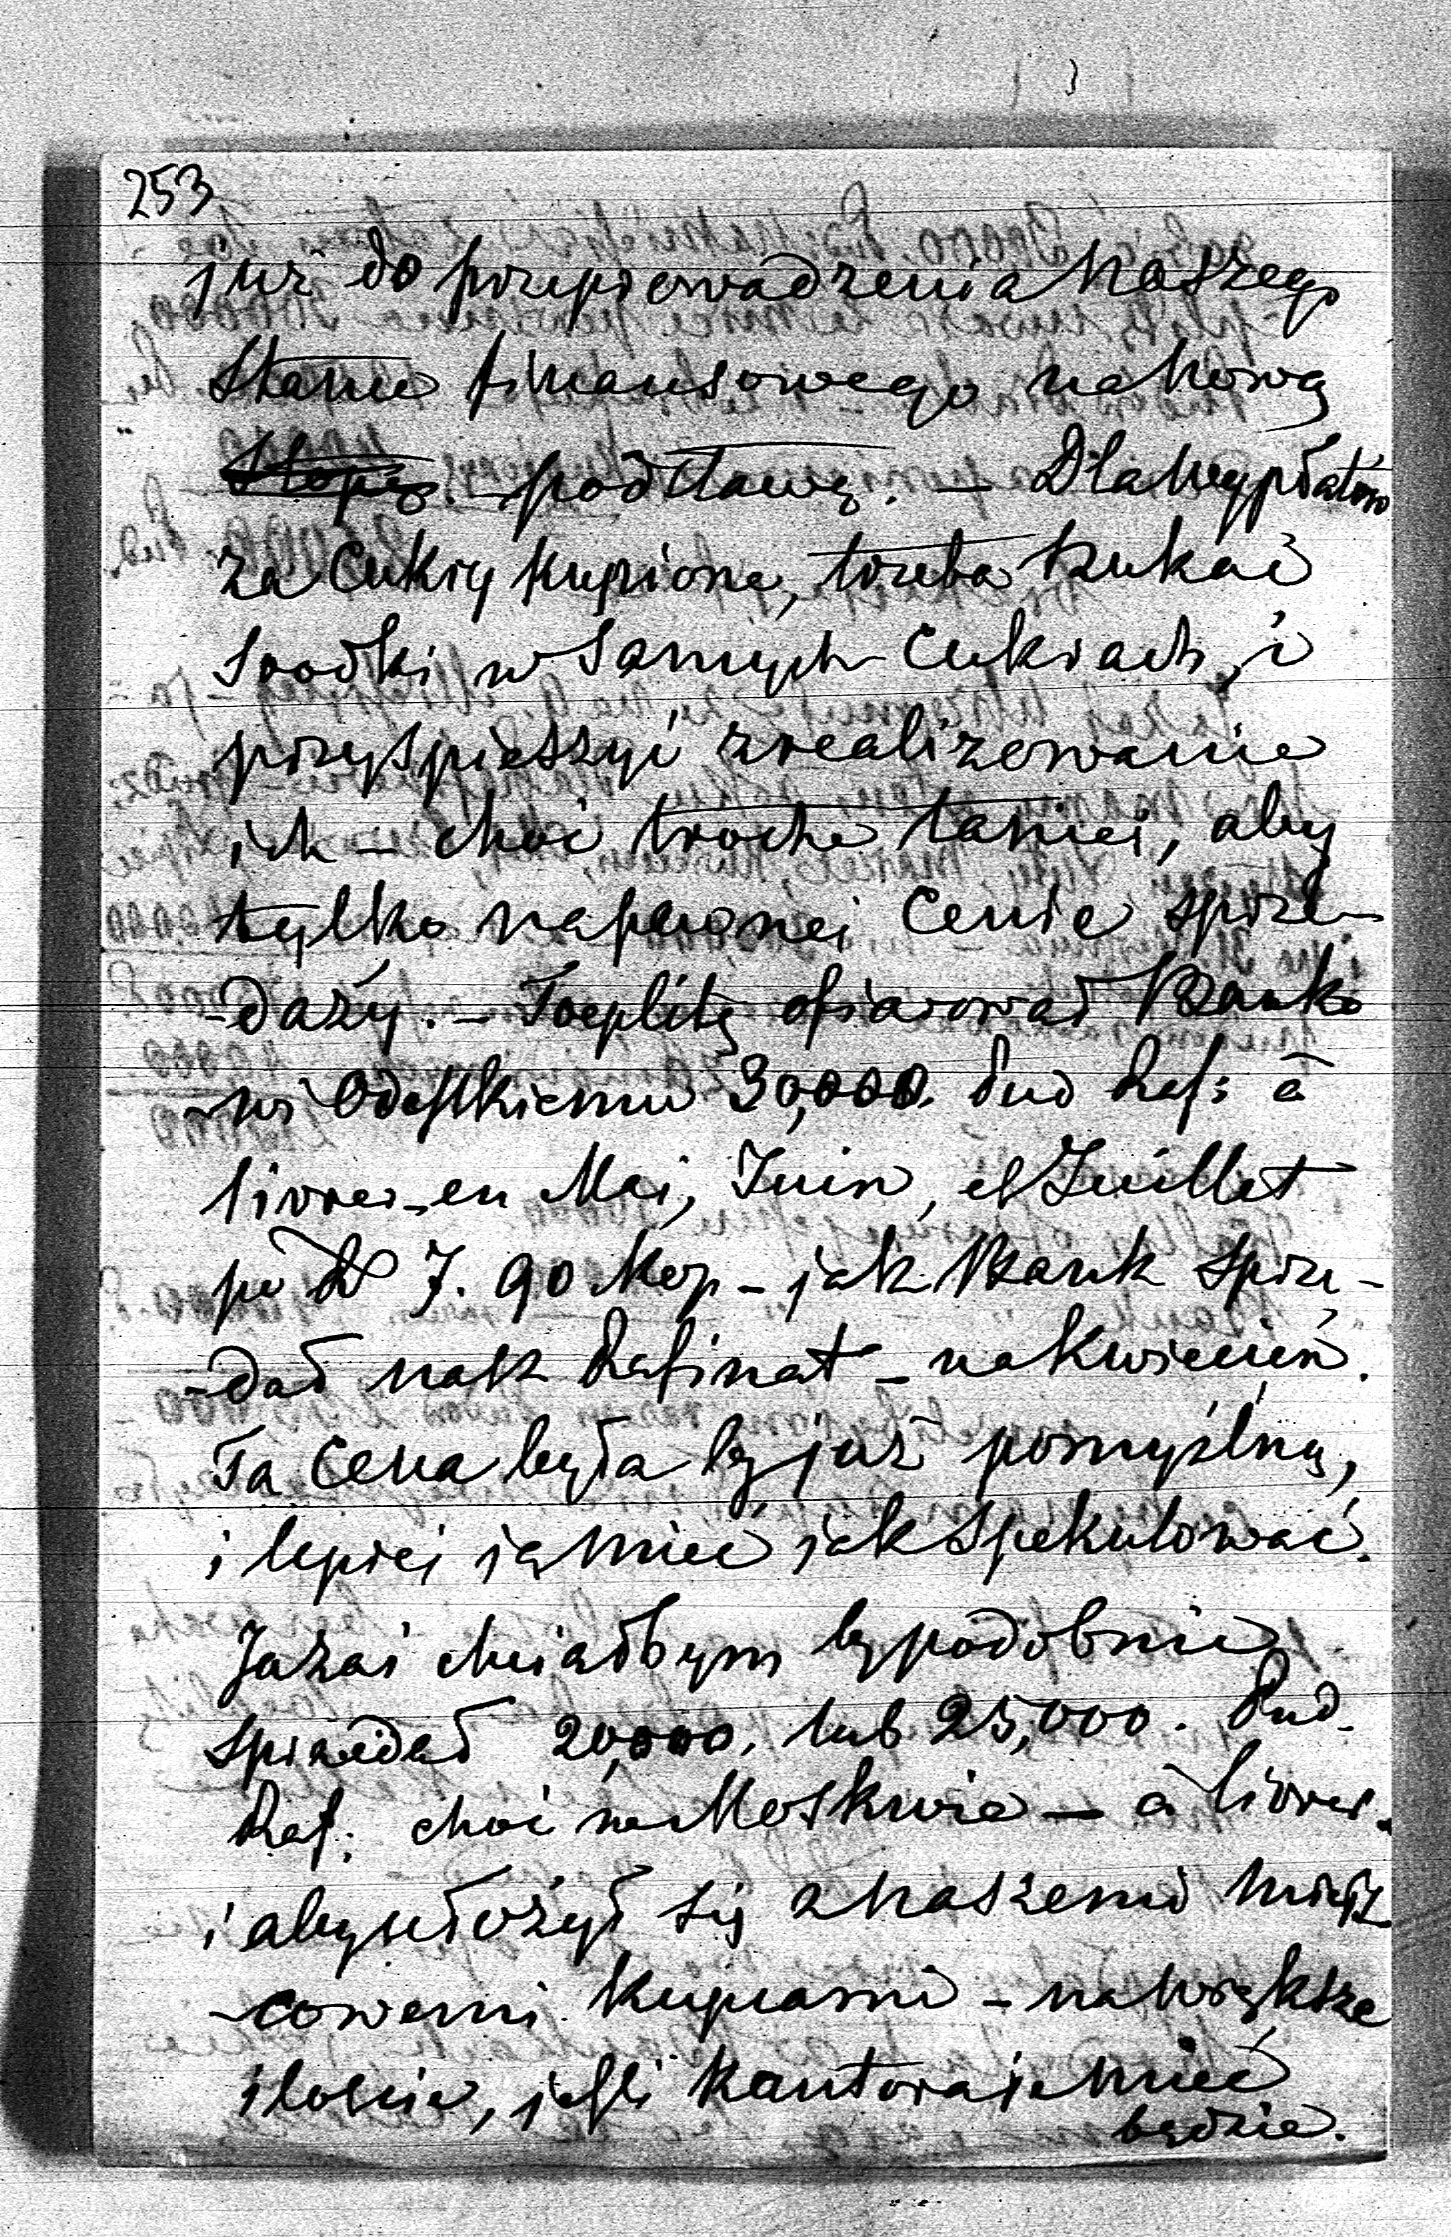 253
już do przeprowadzenia naszego
stanu finansowego na nową
stopę podstawę. — Dla wypłatow
za Cukry kupione, trzeba szukać
srodki w samych Cukrach, i
przyspieszyć zrealizowanie
ich — choć troche taniei, aby
tylko na pewnei Cenie sprze-
-daży. — Toeplitz ofiarował Banko
-wi Odesskiemu 30,000. Pud Raf: à
livrer en Mai, Juin, et Juillet
po R 7. 90 Kop — jak Bank sprze-
-dał nasz Rafinat — na Kwiecień.
Ta Cena byłaby już pomyślną,
i lepiej ją mieć jak spekulować.
Ja zaś chciałbym by podobnie
sprzedał 20,000. lub 25,000. Pud.
Raf. choć w Moskwie — à livrer.
i aby ułożył się z naszemi miejs
-cowemi Kupcami — na większe
ilości, jesli Kantora je mieć
będzie.